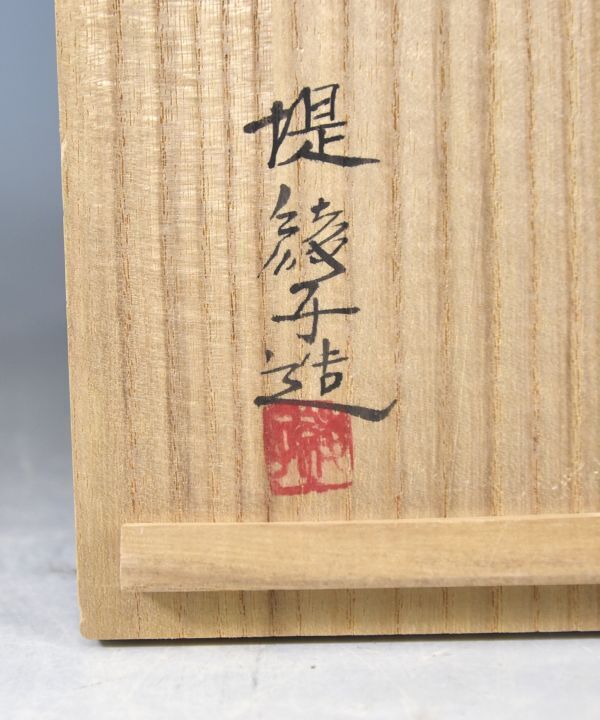 堤綾子造